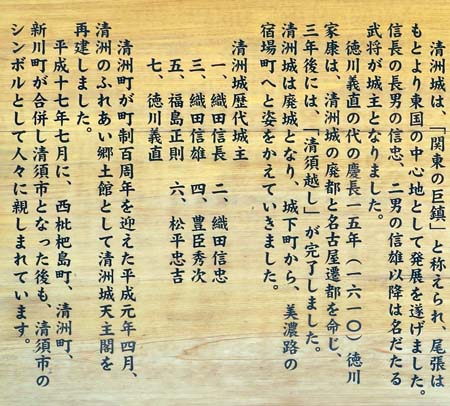 清洲城は、「関東の巨鎮」と称えられ、尾張は
もとより東国の中心地として発展を遂げました。
信長の長男の信忠、二男の信雄以降は名だたる
武将が城主となりました。
徳川義直の代の慶長一五年(一六一〇)徳川
家康は、清洲城の廃都と名古屋遷都を命じ、
三年後には、「清須越し」が完了しました。
清洲城は廃城となり、城下町から、美濃路の
宿場町へと姿をかえていきました。
清洲城歴代城主
一、織田信長 二、織田信忠
三、織田信雄 四、豊臣秀次
五、福島正則 六、松平忠吉
七、徳川義直
清洲町が町制百周年を迎えた平成元年四月、
清洲のふれあい郷土館として清洲城天主閣を
再建しました。
平成十七年七月に、西枇杷島町、清洲町、
新川町が合併し清須市となった後も、清須市の
シンボルとして人々に親しまれています。